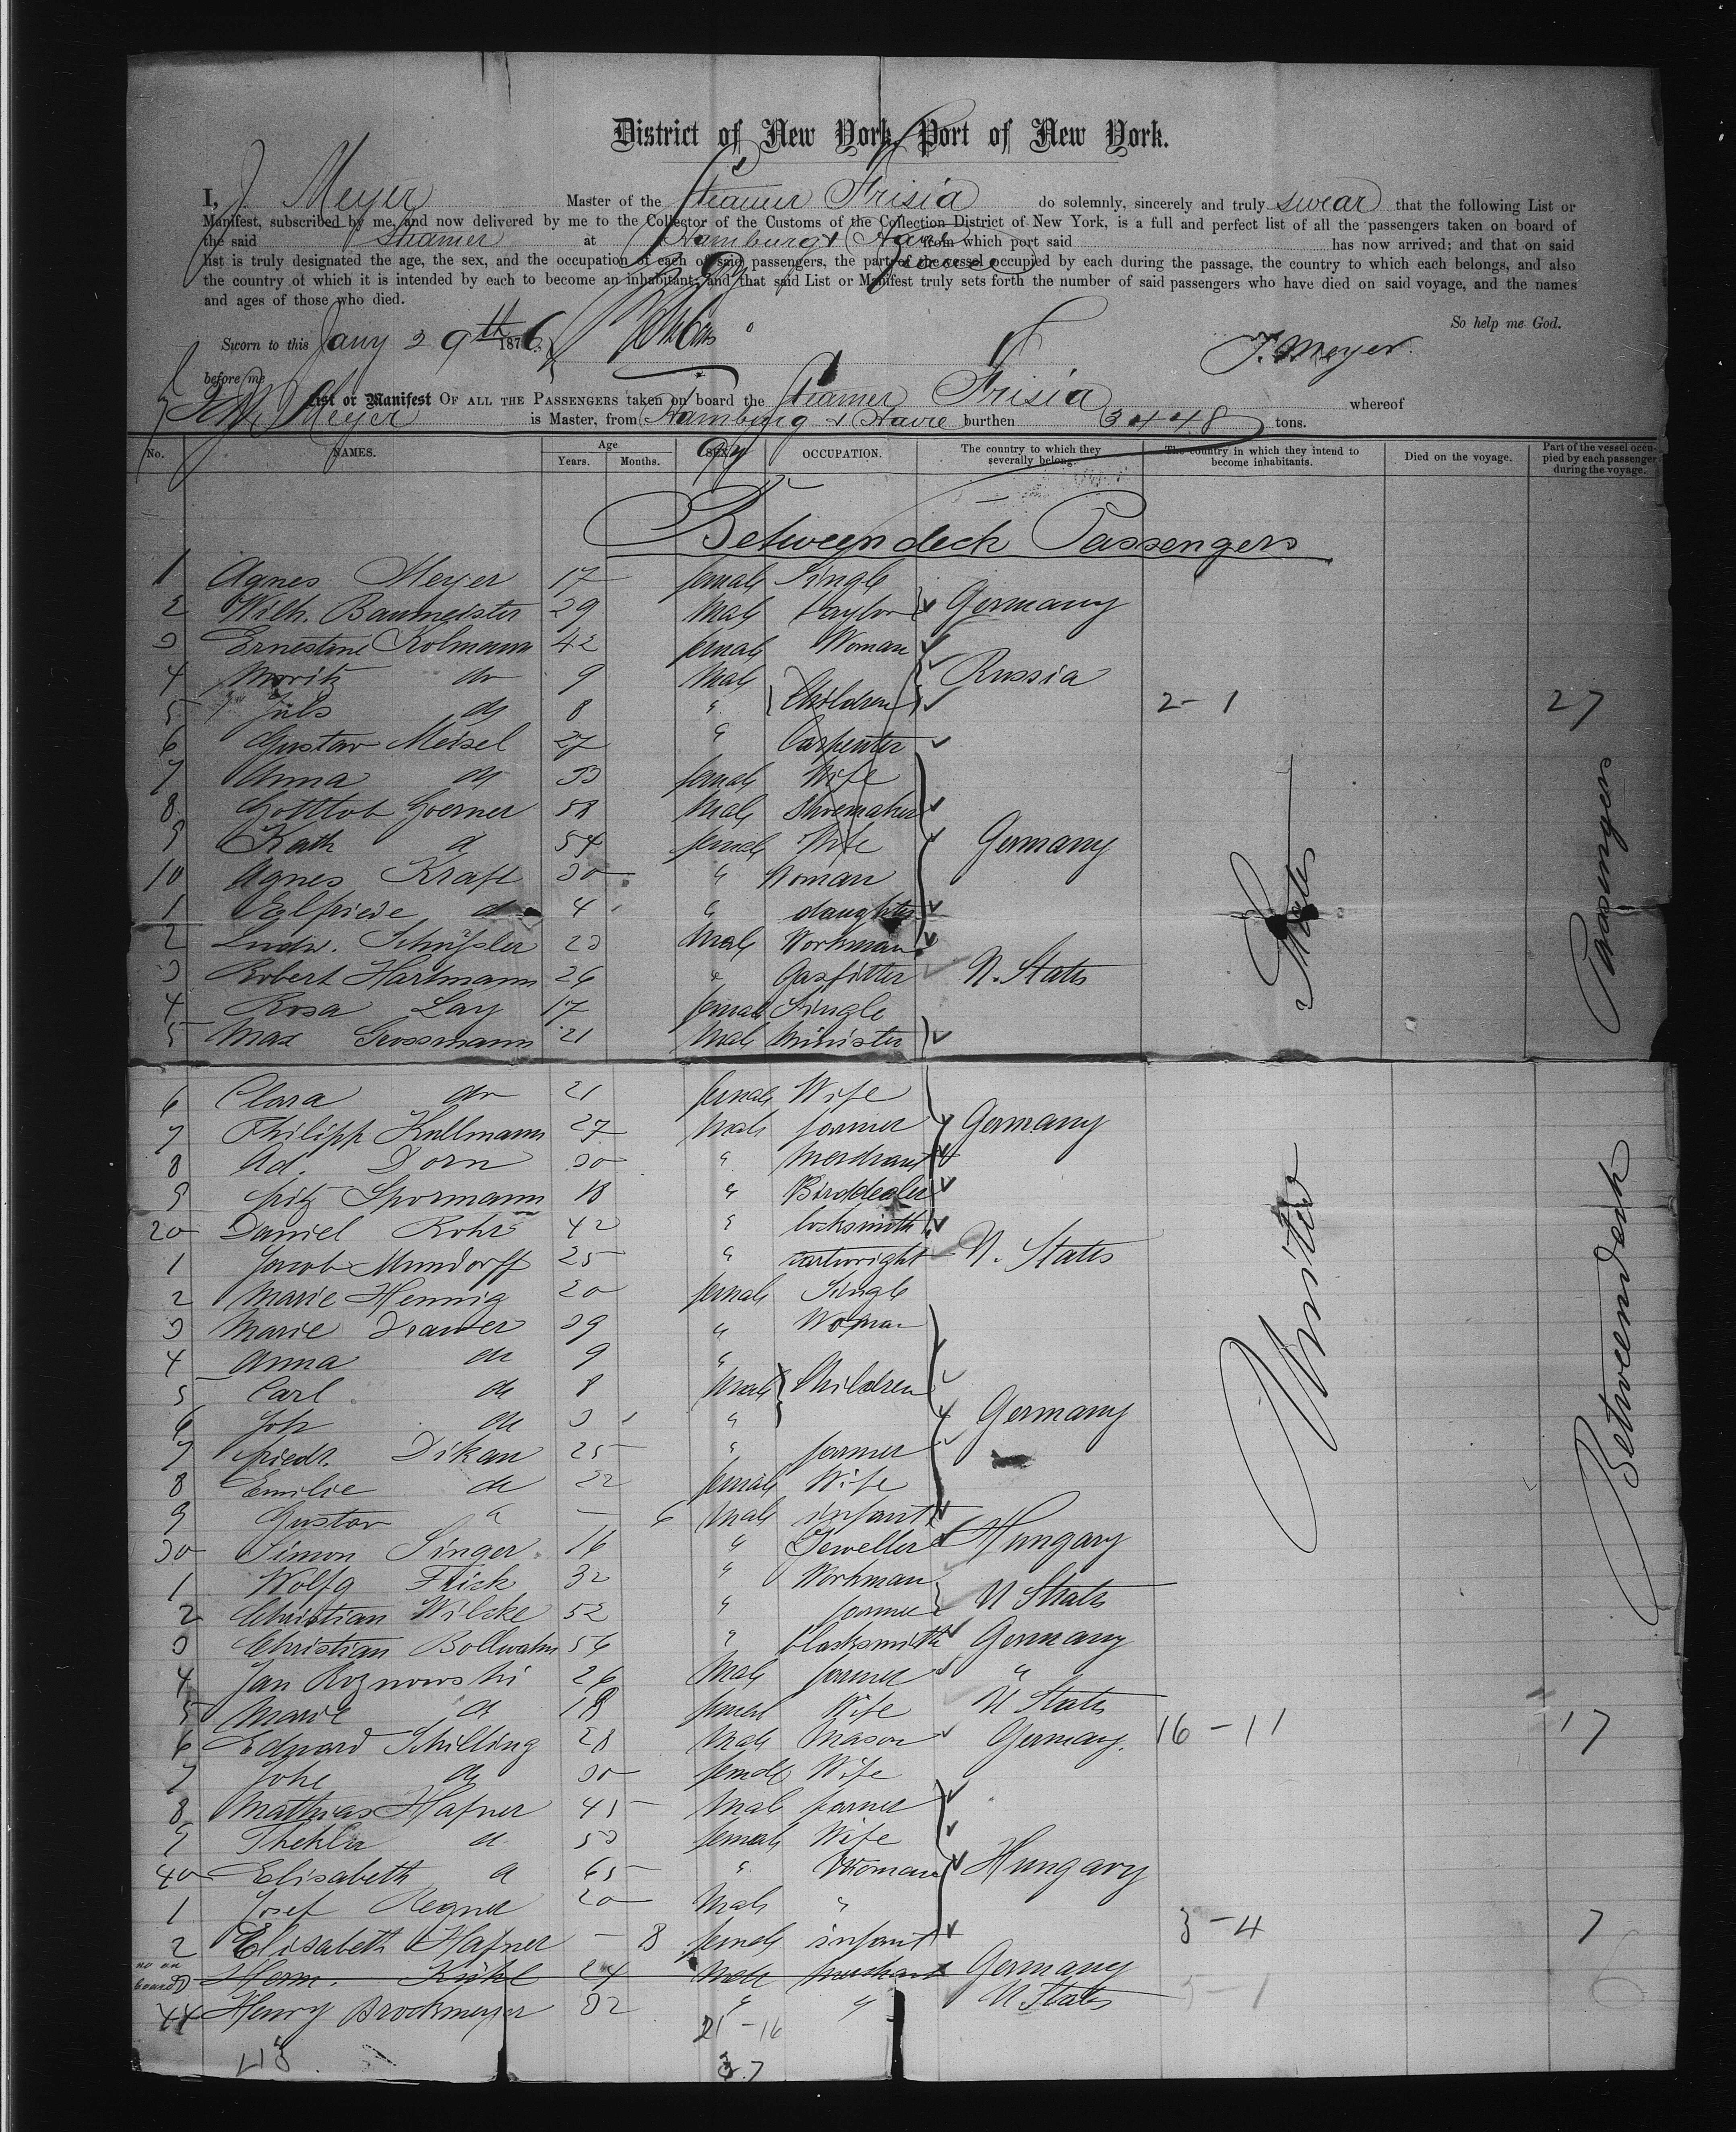 District of New York, Port of New York.
I, J. Meyer Master of the Steamer Frisia do solemnly, sincerely and truly swear that the following List or
Manifest, subscribed by me, and now delivered by me to the Collector of the Customs of the Collection District of New York, is a full and perfect list of all the passengers taken on board of
the said Steamer at Hamburg & Havre from which port said has now arrived; and that on said
list is truly designated the age, the sex, and the occupation of each of said passengers, the part of the vessel occupied by each during the passage, the country to which each belongs, and also
the country of which it is intended by each to become an inhabitant; and that said List or Manifest truly sets forth the number of said passengers who have died on said voyage, and the names
and ages of those who died.
So help me God.
Sworn to this Jany 29th 1876
J. Meyer.
before me
List or Manifest OF ALL THE PASSENGERS taken on board the Steamer Frisia whereof
Meyer is Master, from Hamburg & Havre burthen 3448 tons.
No. NAMES. Age Years. Months. SEX. OCCUPATION. The country to which they severally belong. The country in which they intend to become inhabitants. Died on the voyage. Part of the vessel occupied by each passenger during the voyage.
Between deck Passengers
1 Agnes Meyer 17 female Single
2 Wilh. Baumeister 29 Male taylor Germany
3 Ernestine Kolmann 42 female Woman
4 Moritz do 9 Male Russia
5 Juls do 8 " Children 2-1 27
6 Gustav Meisel 27 " Carpenter
7 Anna do 33 female Wife
8 Gottlob Goerner 58 Male Shoemaker
9 Kath d 54 female Wife Germany
10 Agnes Kraft 30 " Woman
1 Elfriede do 4 " daughter
2 Ludw. Schüssler 23 Male Workman
3 Robert Hartmann 26 " Gasfitter U. States
4 Rosa Lay 17 female Single
5 Max Grossmann 21 Male Minister
6 Clara do 21 female Wife
7 Philipp Kullmann 27 Male farmer Germany
8 Ad. Dorn 30 " Merchant
9 fritz Spormann 18 " Birddealer
20 Daniel Rohr 42 " locksmith
1 Jacob Mundorff 25 " cartwright U. States
2 Marie Hennig 20 female Single
3 Marie Kramer 39 " Woman
4 Anna do 9 "
5 Carl do 8 Male Children
6 Joh do 3 " Germany
7 friedr. Dikan 25 " farmer
8 Emilie do 22 female Wife
9 Gustav " — 6 Male infant
30 Simon Singer 16 " Jeweller Hungary
1 Wolfg Frick 32 " Workman
2 Christian Wilske 52 " farmer U States
3 Christian Bollwahn 56 " blacksmith Germany
4 Jan Roznowski 26 Male farmer "
5 Marie d 18 female Wife U States
6 Eduard Schilling 28 Male Mason Germany. 16-11 17
7 Johe do 30 female Wife
8 Mathias Hafner 45 Male farmer
9 Thekla d 53 female Wife
40 Elisabeth d 65 " Woman Hungary
1 Josef Regner 20 Male "
2 Elisabeth Hafner — 8 female infant 3-4 7
no on board 3 Herm. Kühl 24 Male merchant Germany
44 Henry Brockmeyer 32 " " U States 5-1
21-16
37
United States
Betweendeck Passengers